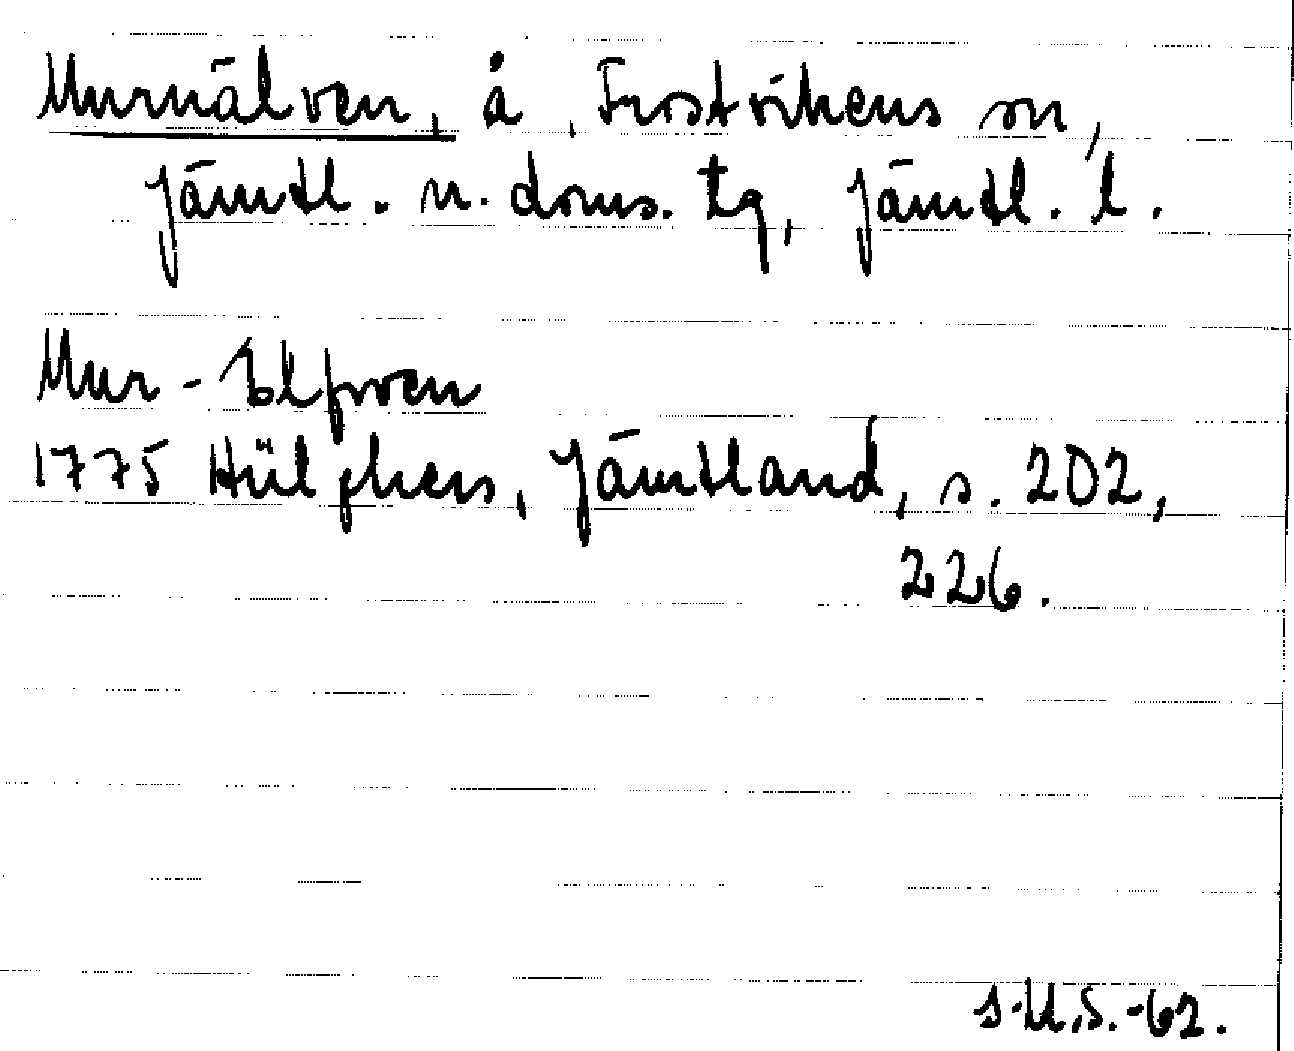 Muruälven, å, Frostvikens sn,
Jämtl. n. doms. tg, Jämtl. l.
Mur-Elfwen
1775 Hülphers, Jämtland, s. 202,
226.
J.U.S.-62.